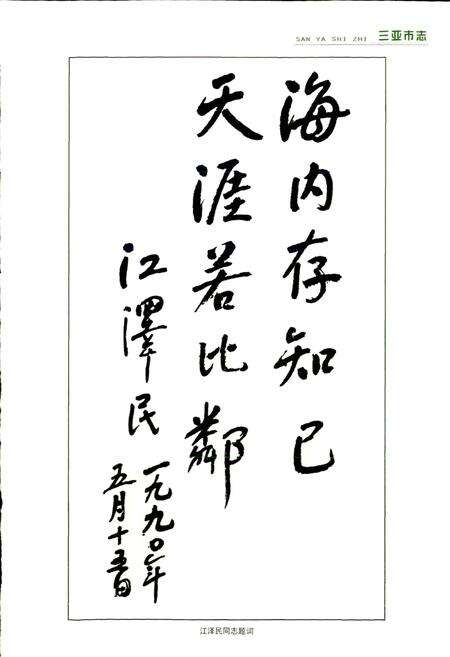 SAN YA SHI ZHI 三亚市志
海内存知己
天涯若比鄰
江澤民
一九九〇年
五月十五日
江泽民同志题词